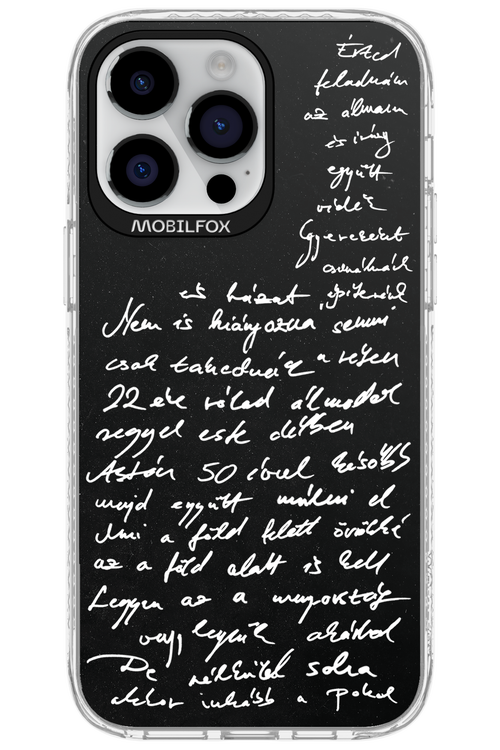 MOBILFOX
Érted
feladnám
az álmaim
és így
együtt
veled
Gyerekeket
csinálnánk
és házat építenénk
Nem is hiányozna semmi
csak
22 éve rólad álmodok
reggel este délben
Aztán 50 évvel később
majd együtt múlni el
Ami a föld felett örökké
az a föld alatt is kell
Legyen az a mennyország
vagy legyünk akárhol
De nélküled soha
akkor inkább a pokol